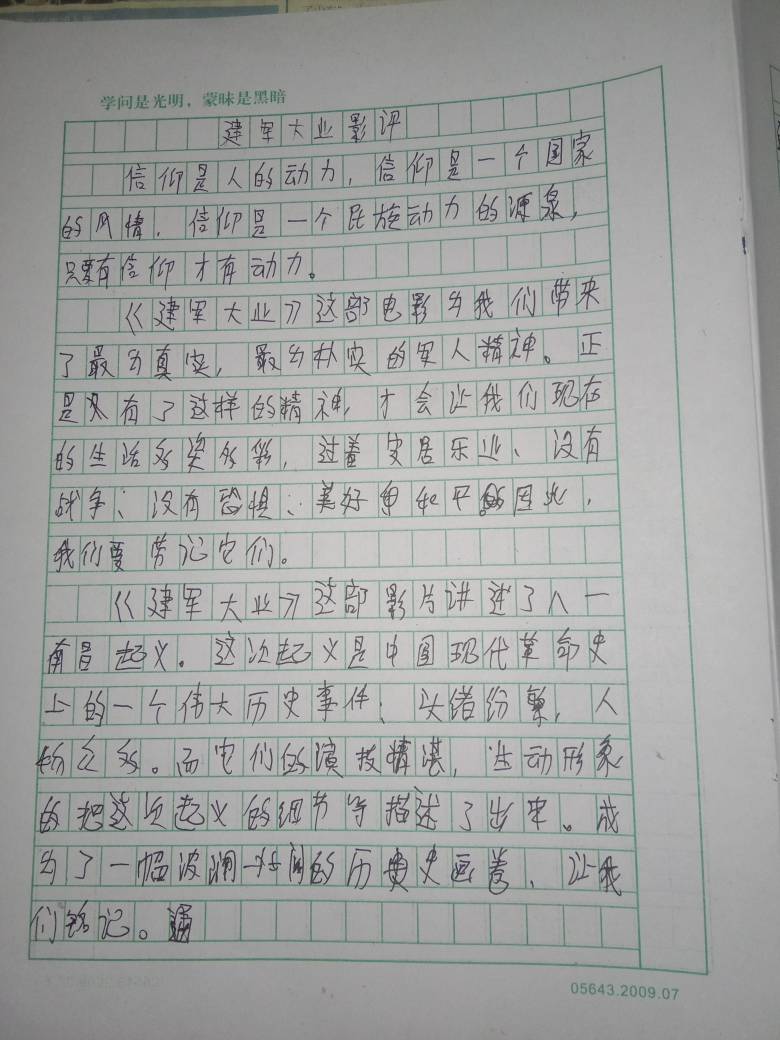 学问是光明，蒙昧是黑暗
建军大业影评
信仰是人的动力，信仰是一个国家
的风情，信仰是一个民族动力的源泉，
只要有信仰才有动力。
《建军大业》这部电影为我们带来
了最为真实，最为朴实的军人精神。正
是只有了这样的精神，才会让我们现在
的生活多姿多彩，过着安居乐业、没有
战争、没有恐惧、美好更和平的因此，
我们要劳记它们。
《建军大业》这部影片讲述了八一
南昌起义。这次起义是中国现代革命史
上的一个伟大历史事件，头绪纷繁，人
物众多。而它们的演技精湛，生动形象
的把这次起义的细节等描述了出来。成
为了一幅波澜壮阔的历史画卷，让我
们铭记。
05643.2009.07